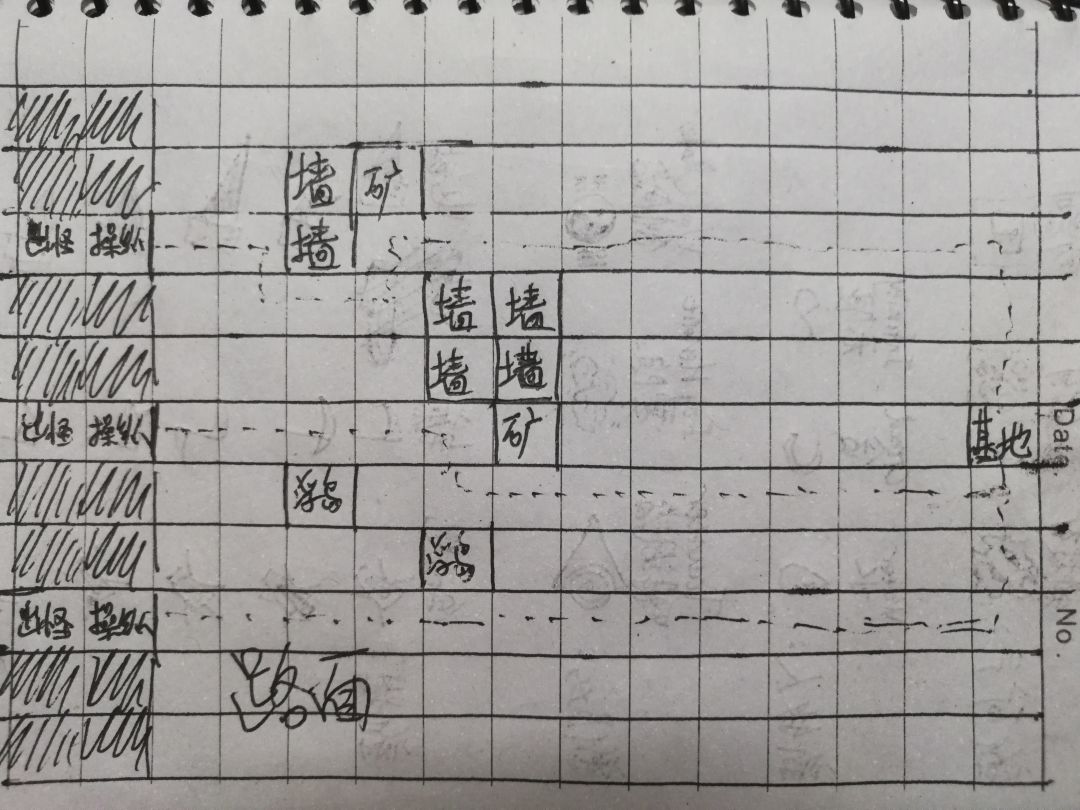 墙 矿
出怪 操纵 墙
墙 墙
墙 墙
出怪 操纵 矿 基地
Data.
浮岛
浮岛
出怪 操纵
No.
路面